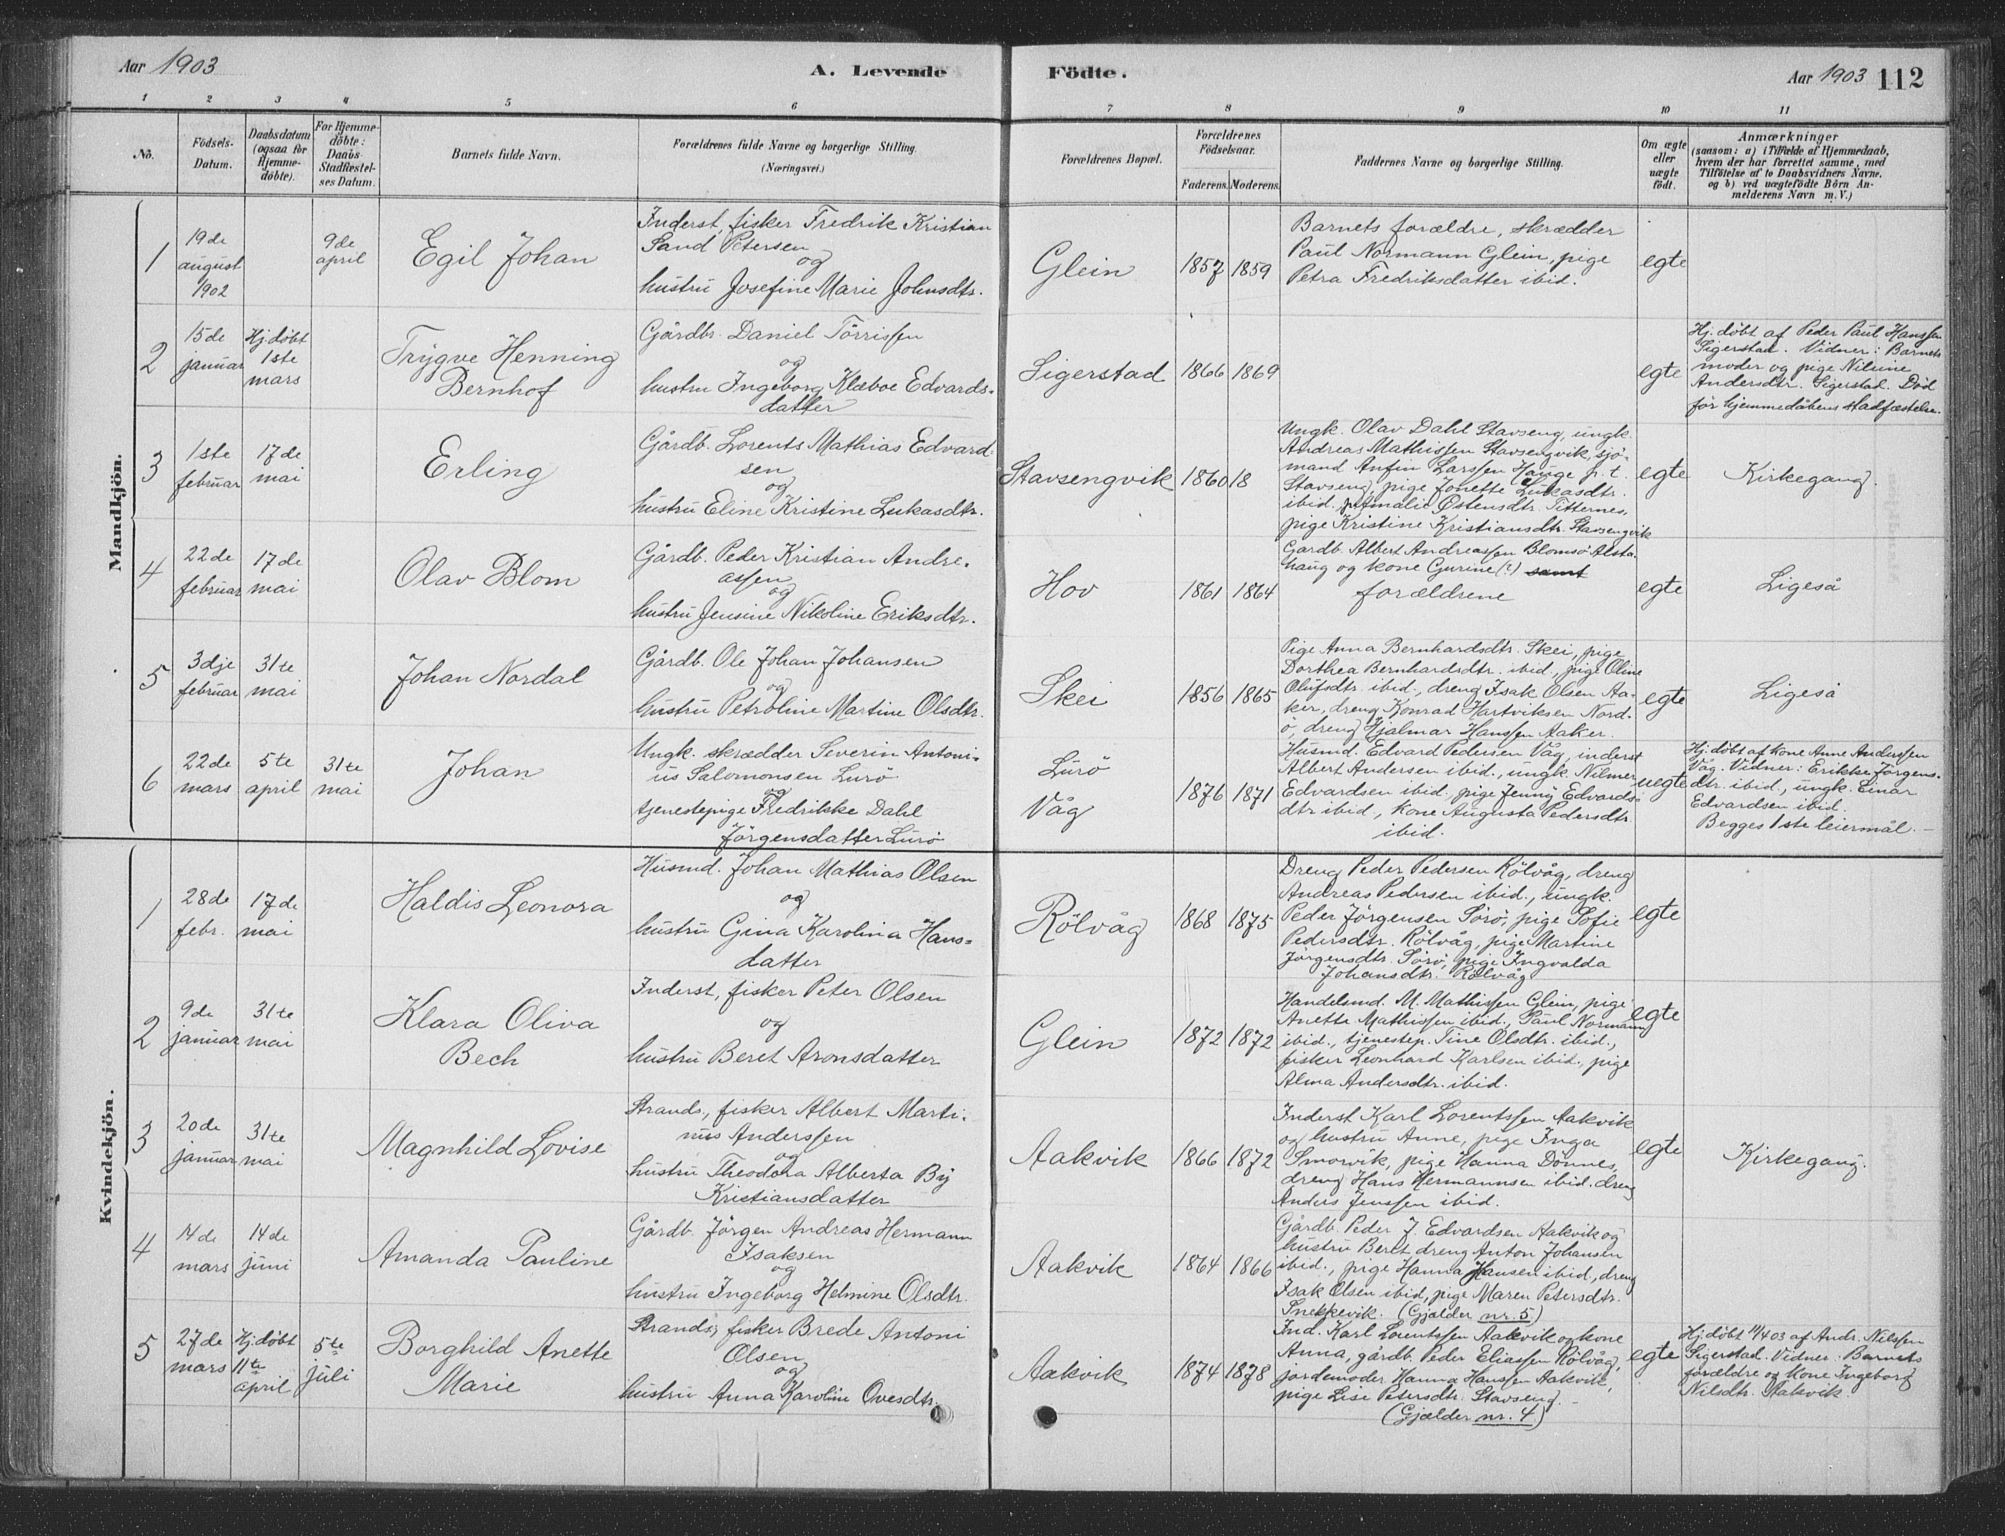 Aar 1903
A. Levende
Födte.
Aar 1903 112
1 2 3 4 5 6 7 8 9 10 11
No.
Födsels-
Datum.
Daabsdatum
(ogsaa for
Hjemme-
døbte).
For Hjemme-
döbte:
Daabs-
Stadfæstel-
ses Datum.
Barnets fulde Navn.
Forældrenes fulde Navne og borgerlige Stilling.
(Næringsvei.)
Forældrenes Bopæl.
Forældrenes
Födselsaar.
Faderens. Moderens.
Faddernes Navne og borgerlige Stilling.
Om ægte
eller
uægte
födt.
Anmærkninger
(saasom: a) i Tilfælde af Hjemmedaab,
hvem der har forrettet samme, med
Tilföielse af to Daabsvidners Navne.
og b) ved uægtefödte Börn An-
melderens Navn m.V.)
Mandkjön.
1
19de
august
1902
9de
april
Egil Johan
Inderst, fisker Fredrik Kristian
Sand Petersen
og
hustru Josefine Marie Johnsdtr.
Glein
1857 1859
Barnets forældre, skrædder
Paul Normann Glein, pige
Petra Fredriksdatter ibid.
egte
2
15de
januar
Hj.døbt
1ste
mars
Trygve Henning
Bernhof
Gårdbr. Daniel Törrissen
og
hustru Ingeborg Klæboe Edvards-
datter
Sigerstad
1866 1869
egte
Hj. døbt af Peder Paul Hanssen
Sigerstad. Vidner: Barnets
moder og pige Nilsine
Andersdtr. Sigerstad. Død
før hjemmedåbens stadfæstelse.
3
1ste
februar
17de
mai
Erling
Gårdb. Lorents Mathias Edvard-
sen
og
hustru Eline Kristine Lukasdtr.
Stavsengvik
1860 18
Ungk. Olav Dahl Stavseng, ungk
Andreas Mathissen Stavsengvik, sjö-
mand Anfin Larssen Hauge p.t.
Stavseng, pige Jonette Lukasdtr.
ibid. p. Amalie Östensdtr. Titternes,
pige Kristine Kristiansdtr. Stavsengvik
egte
Kirkegang.
4
22de
februar
17de
mai
Olav Blom
Gårdb. Peder Kristian Andre-
assen
og
hustru Jensine Nikoline Eriksdtr.
Hov
1861 1864
Gardb. Albert Andreassen Blomsö Alsta-
haug og kone Gurine (?) samt
forældrene
egte
Ligeså
5
3dje
februar
31te
mai
Johan Nordal
Gårdb. Ole Johan Johansen
og
hustru Petroline Martine Olsdtr.
Skei
1856 1865
Pige Anna Bernhardsdtr. Skei, pige
Dorthea Bernhardsdtr. ibid., pige Oline
Olufsdtr. ibid., dreng Isak Olsen Aa-
ker, dreng Konrad Hartviksen Nord-
ö, dreng Hjalmar Hanssen Aaker.
egte
Ligeså
6
22de
mars
5te
april
31te
mai
Johan
Ungk. skrædder Severin Antoni-
us Salomonsen Lurö
og
tjenestepige Fredrikke Dahl
Jörgensdatter Lurö
Lurö
Våg
1876 1871
Husmd. Edvard Pedersen Våg, inderst
Albert Andersen ibid., ungk. Nilmer
Edvardsen ibid., pige Jenny Edvards-
dtr ibid., kone Augusta Pedersdtr.
ibid.
uegte
Hj. døbt af kone Anne Anderssen
Våg. Vidner: Erikke Jörgens-
dtr. ibid., ungk. Einar
Edvardsen ibid.
Begges 1ste leiermål.
Kvindekjön.
1
28de
febr.
17de
mai
Haldis Leonora
Husmd. Johan Mathias Olsen
og
hustru Gina Karolina Hans-
datter
Rölvåg
1868 1875
Dreng Peder Pedersen Rölvåg, dreng
Andreas Pedersen ibid., ungk.
Peder Jörgensen Sörö, pige Sofie
Pedersdtr. Rölvåg, pige Martine
Jörgensdtr. Sörö, pige Ingvalda
Johansdtr. Rölvåg
egte
2
9de
januar
31te
mai
Klara Oliva
Bech
Inderst, fisker Peter Olsen
og
hustru Beret Aronsdatter
Glein
1872 1872
Handelsmd. M. Mathissen Glein, pige
Anette Mathissen ibid., Paul Normann
ibid., tjenestep. Tine Olsdtr. ibid.,
fisker Leonhard Karlsen ibid., pige
Alma Andersdtr. ibid.
egte
3
20de
januar
31te
mai
Magnhild Lovise
Strands., fisker Albert Marti-
nius Anderssen
og
hustru Theodora Alberta By
Kristiansdatter
Aakvik
1866 1872
Inderst Karl Lorentssen Aakvik
og hustru Anne, pige Inga
Smorvik, pige Hanna Dönnes,
dreng Hans Hermannsen ibid. dreng
Anders Jenssen ibid.
egte
Kirkegang.
4
14de
mars
14de
juni
Amanda Pauline
Gårdb. Jörgen Andreas Hermann
Isaksen
og
hustru Ingeborg Helmine Olsdtr.
Aakvik
1864 1866
Gårdb. Peder J. Edvardsen Aakvik og
hustru Beret, dreng Anton Johansen
ibid., pige Hanna Hansen ibid., dreng
Isak Olsen ibid, pige Maren Petersdtr.
Snekkevik. (Gjælder nr. 5)
5
27de
mars
Hj.døbt
11te
april
5te
juli
Borghild Anette
Marie
Strands, fisker Brede Antoni
Olsen
og
hustru Anna Karoline Ovesdtr.
Aakvik
1874 1878
Ind. Karl Lorentssen Aakvik og kone
Anna, gårdb. Peder Eliassen Rölvåg,
jordemoder Hanna Hanssen Aakvik,
pige Lise Petersdtr. Stavseng.
(Gjælder nr. 4)
egte
Hj. døbt 11/4 03 af Ands. Nilssen
Sigerstad. Vidner: Barnets
forældre og kone Ingeborg
Nilsdtr. Aakvik